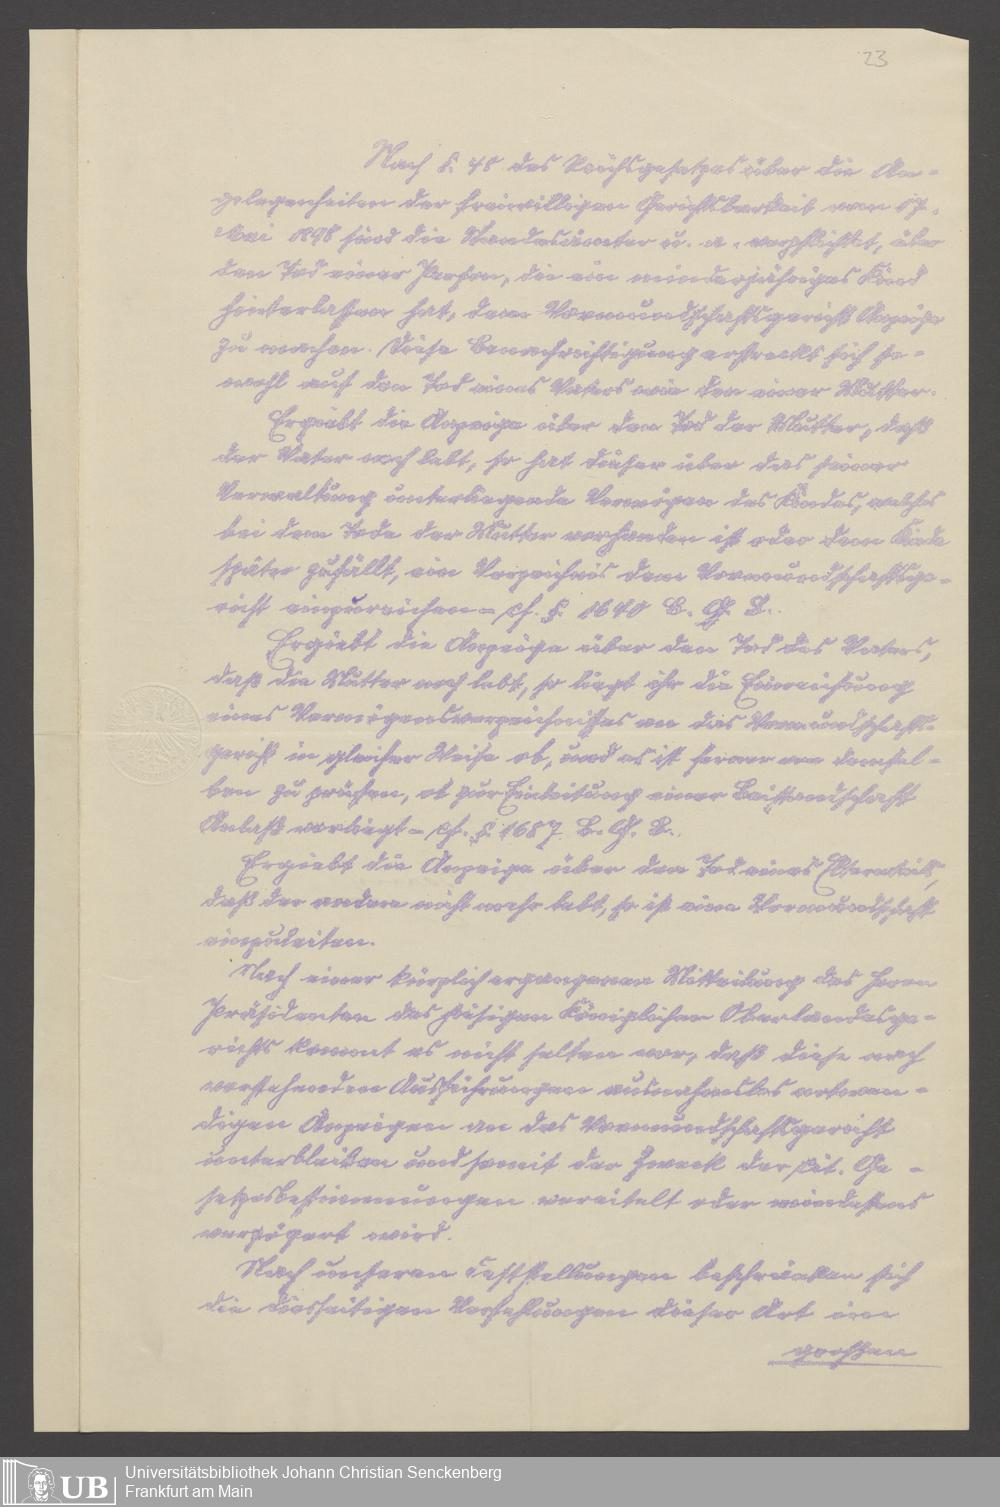 23
Nach §. 48 des Reichsgesetzes über die An-
gelegenheiten der freiwilligen Gerichtsbarkeit vom 17.
Mai 1898 sind die Standesämter u. a. verpflichtet, über
den Tod einer Person, die ein minderjähriges Kind
hinterlassen hat, dem Vormundschaftsgericht Anzeige
zu machen. Diese Benachrichtigung erstreckt sich so-
wohl auf den Tod eines Vaters wie den einer Mutter.
Ergiebt die Anzeige über den Tod der Mutter, daß
der Vater noch lebt, so hat dieser über das seiner
Verwaltung unterliegende Vermögen des Kindes, welches
bei dem Tode der Mutter vorhanden ist oder dem Kinde
später zufällt, ein Verzeichnis dem Vormundschaftsge-
richt einzureichen - cf. §. 1640 B. G. B.
Ergiebt die Anzeige über den Tod des Vaters,
daß die Mutter noch lebt, so liegt ihr die Einreichung
eines Vermögensverzeichnisses an das Vormundschafts-
gericht in gleicher Weise ob, und es ist ferner von demsel-
ben zu prüfen, ob zur Einleitung einer Beistandschaft
Anlaß vorliegt - cf. §. 1687 B. G. B.
Ergiebt die Anzeige über den Tod eines Elternteils,
daß der andere nicht mehr lebt, so ist eine Vormundschaft
einzuleiten.
Nach einer kürzlich ergangenen Mitteilung des Herrn
Präsidenten des hiesigen Königlichen Oberlandesge-
richts kommt es nicht selten vor, daß diese nach
vorstehenden Ausführungen ausnahmslos notwen-
digen Anzeigen an das Vormundschaftsgericht
unterbleiben und somit der Zweck der cit. Ge-
setzesbestimmungen vereitelt oder mindestens
verzögert wird.
Nach unseren Feststellungen beschränken sich
die diesseitigen Verfehlungen dieser Art im
grossen
UB
Universitätsbibliothek Johann Christian Senckenberg
Frankfurt am Main